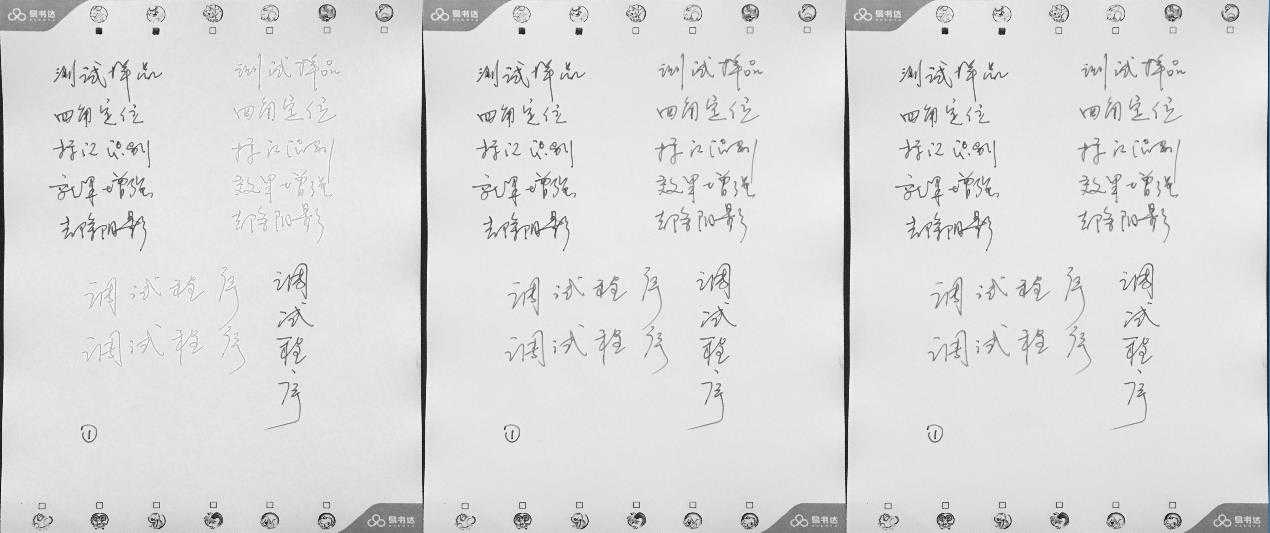 易书达 易书达 易书达
测试样品 测试样品 测试样品 测试样品 测试样品 测试样品
四角定位 四角定位 四角定位 四角定位 四角定位 四角定位
标记识别 标记识别 标记识别 标记识别 标记识别 标记识别
效果增强 效果增强 效果增强 效果增强 效果增强 效果增强
去除阴影 去除阴影 去除阴影 去除阴影 去除阴影 去除阴影
调试程序 调试程序 调试程序
调试程序 调试程序 调试程序
调试程序 调试程序 调试程序
① ① ①
易书达 易书达 易书达